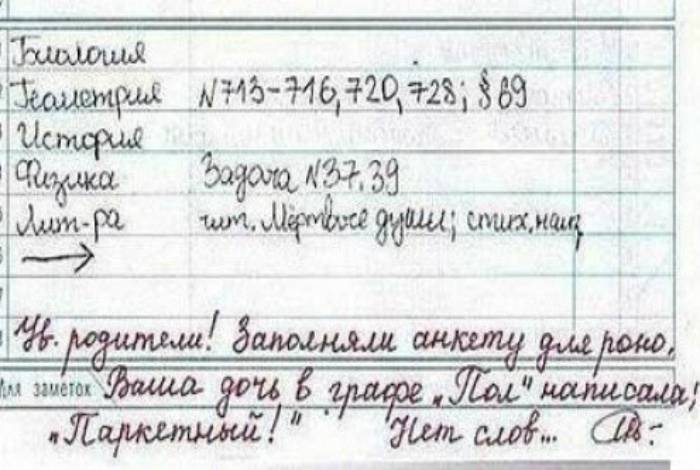 Биология
Геометрия N713-716, 720, 728; § 69
История
Физика Задача N37, 39
Лит-ра чит. Мёртвые души; стих. наиз
Ув. родители! Заполняли анкету для роно,
Для заметок Ваша дочь в графе „Пол" написала;
„Паркетный!" Нет слов...